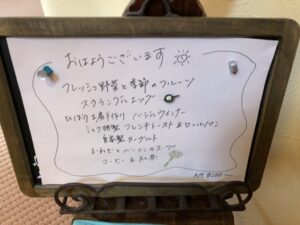 おはようございます
フレッシュ野菜と季節のフルーツ
スクランブルエッグ
ひばり工房手作り バジルウインナー
シェフ特製 フレンチトースト&ロールパン
自家製ヨーグルト
玉ねぎとベーコンのスープ
コーヒー&紅茶
AM 8:00〜